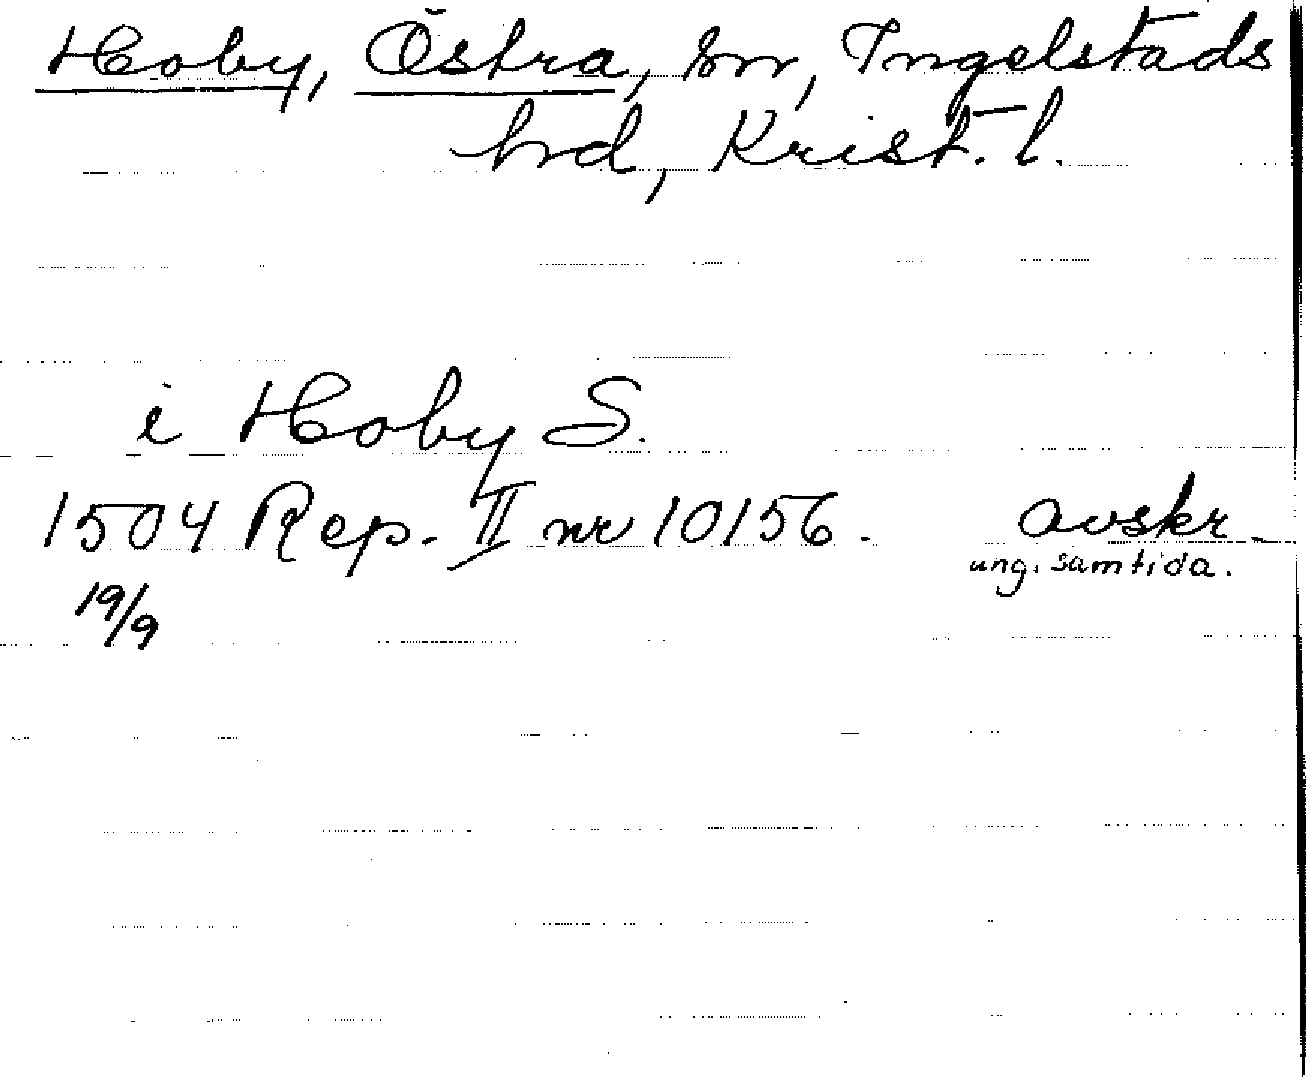 Hoby, Östra, sn, Ingelstads
hrd, Krist. l.
i Hoby S.
1504 Rep. II nr 10156. avskr.
ung. samtida.
19/9